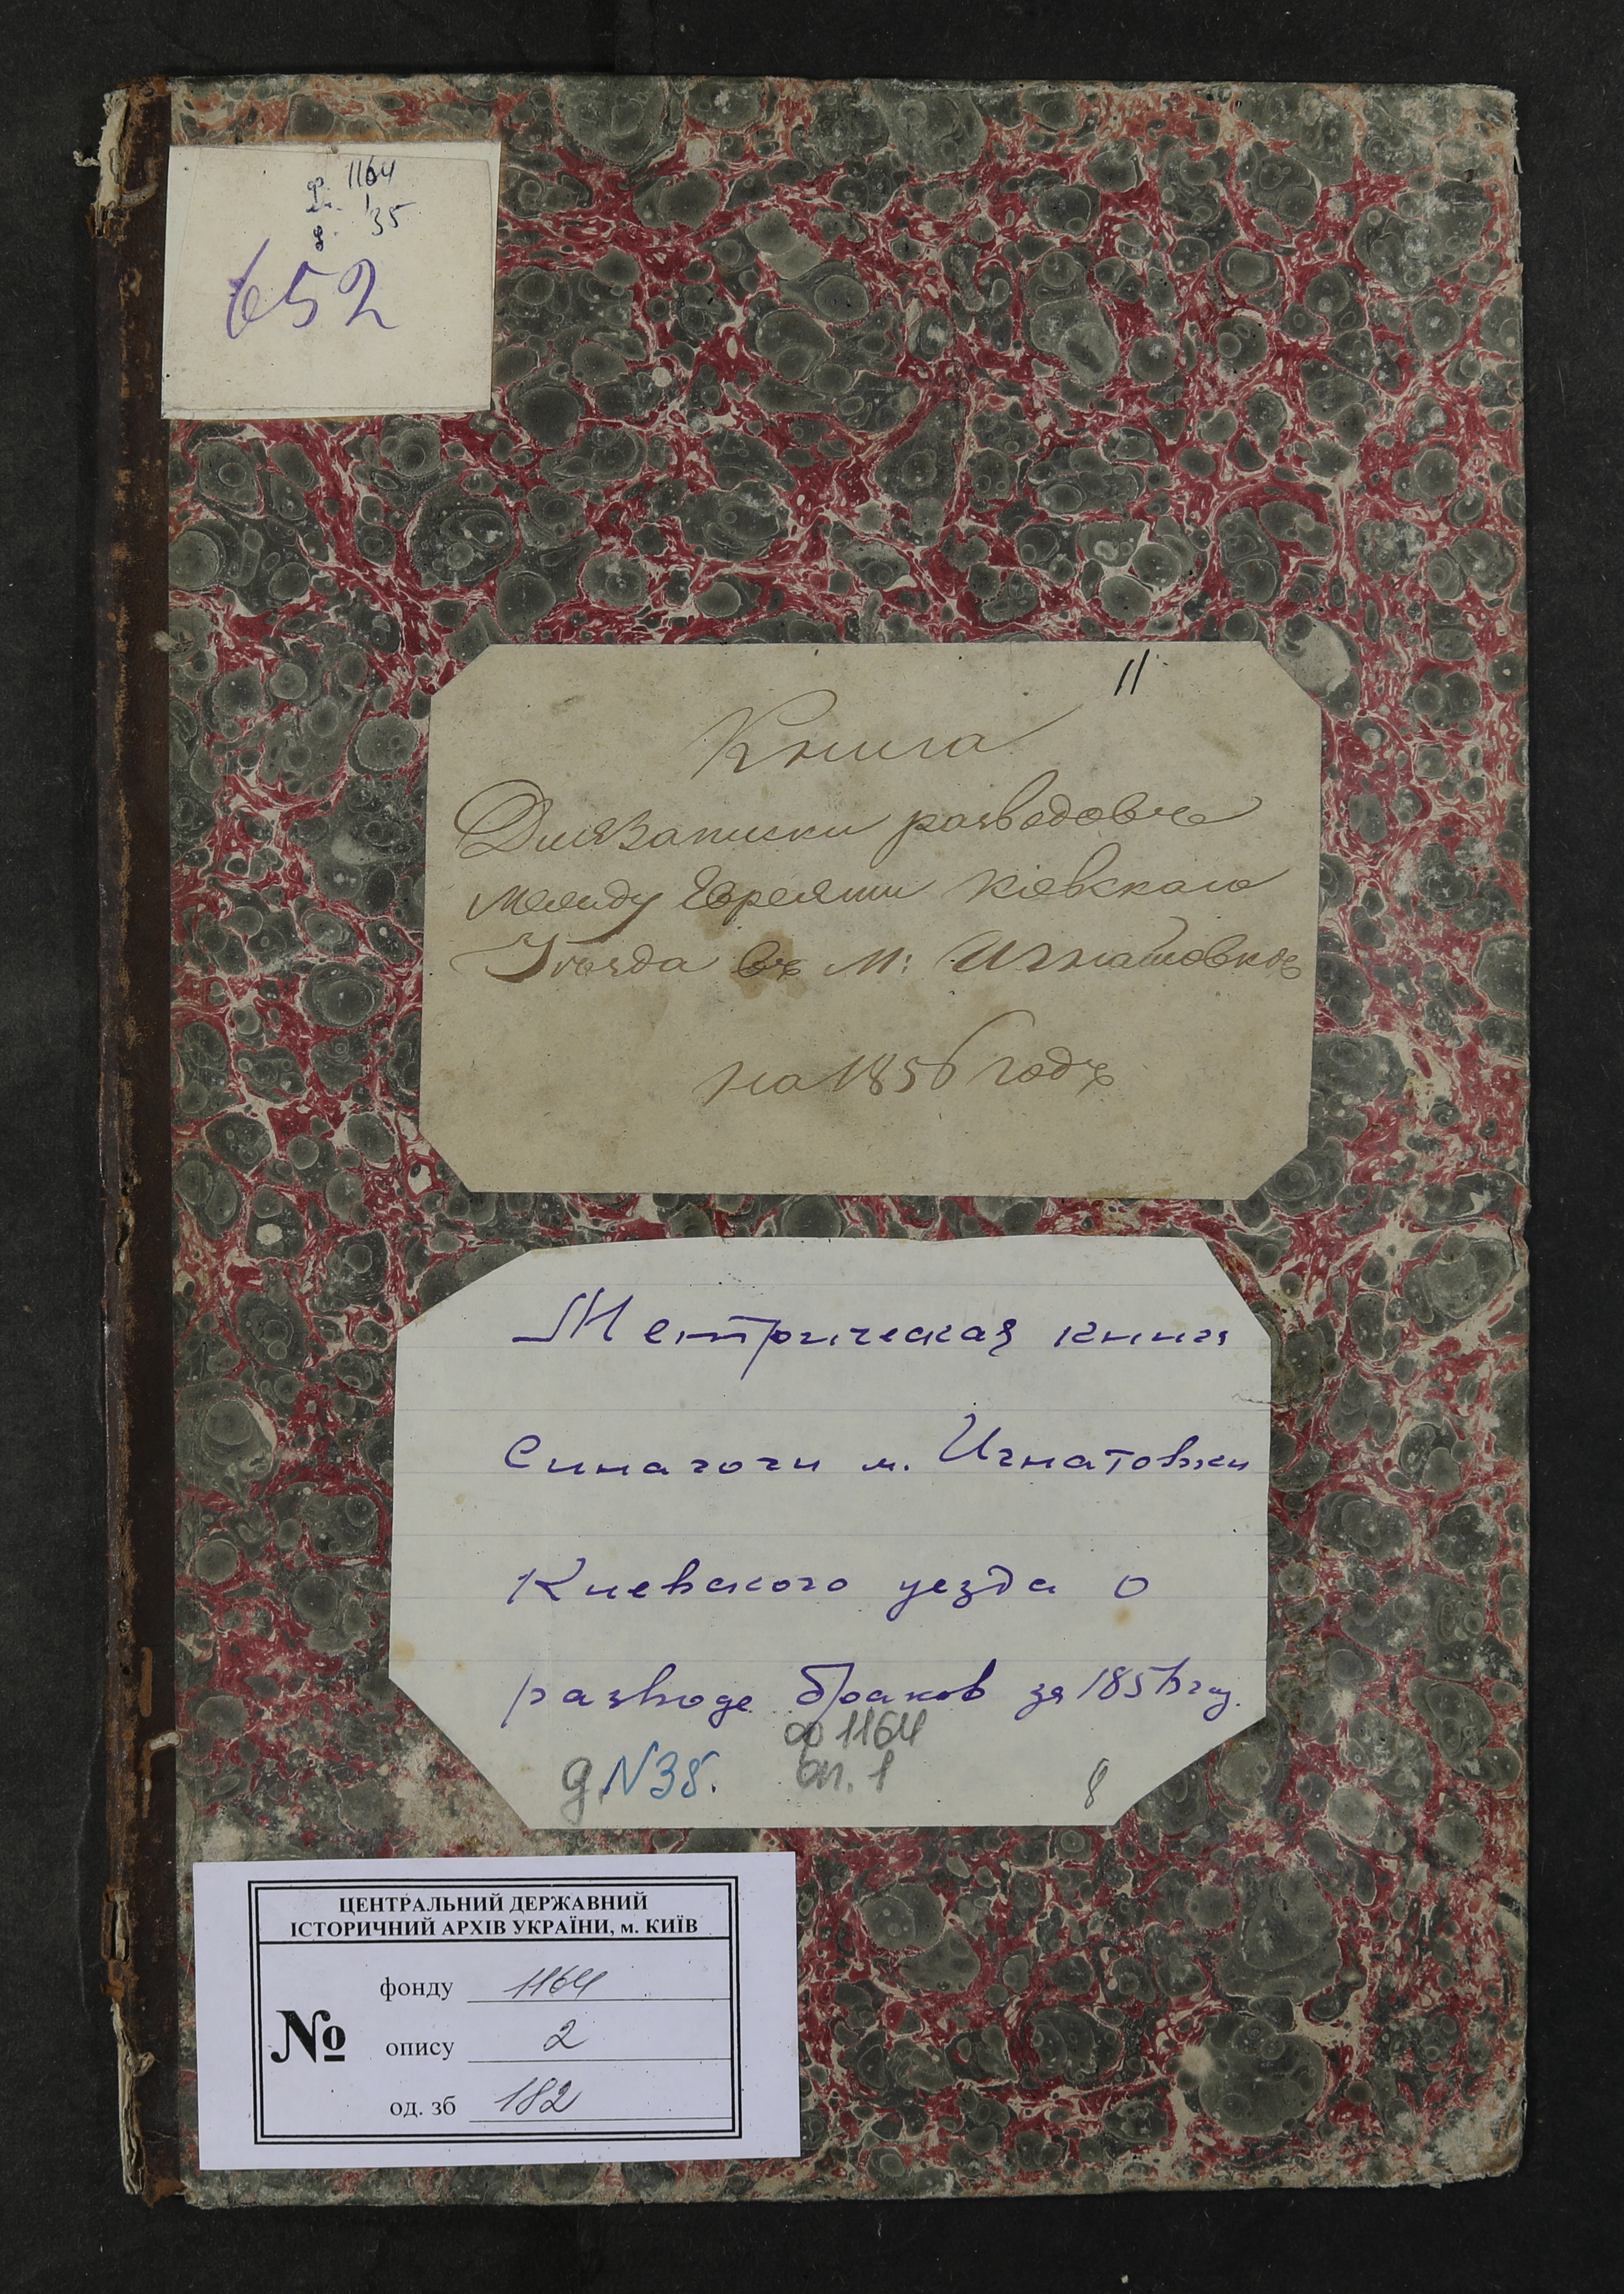 ф. 1164
оп. 1
д. 35
652
11
Книга
Для Записки разводовъ
между Евреями Киевскаго
Уѣзда въ М: Игнатовкѣ
на 1856 годъ
Метрическая книга
Синагоги м. Игнатовки
Киевского уезда о
разводе браков за 1856 год.
ф 1164
д. N 35. оп. 1
8
ЦЕНТРАЛЬНИЙ ДЕРЖАВНИЙ
ІСТОРИЧНИЙ АРХІВ УКРАЇНИ, м. КИЇВ
№
фонду 1164
опису 2
од. зб 182